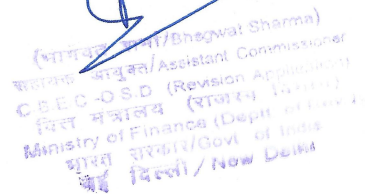 (भागवत शर्मा/Bhagwat Sharma)
सहायक आयुक्त/Assistant Commissioner
C B E C - O S D (Revision Application)
वित्त मंत्रालय (राजस्व
Ministry of Finance (Deptt of
भारत सरकार/Govt of India
नई दिल्ली / New Delhi